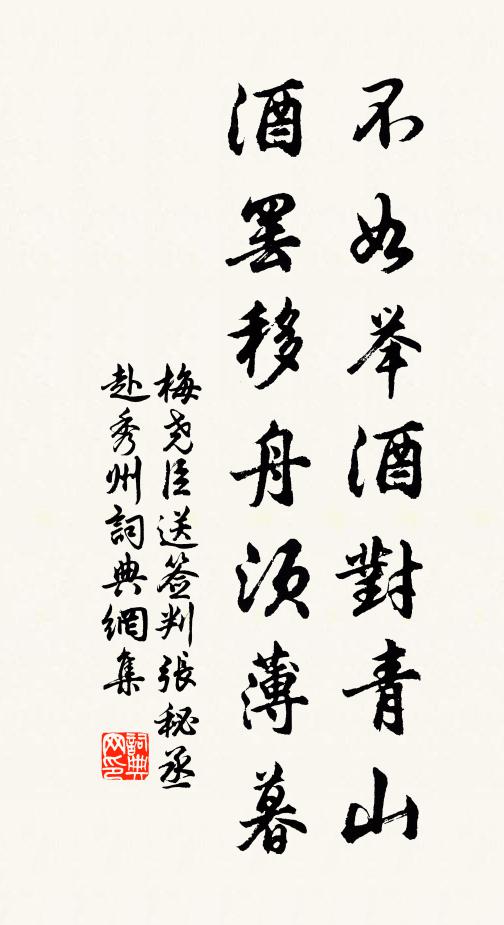 不如举酒對青山
酒罢移舟须薄暮
梅尧臣送签判張秘丞
赴秀州詞典網集
詞典
网印